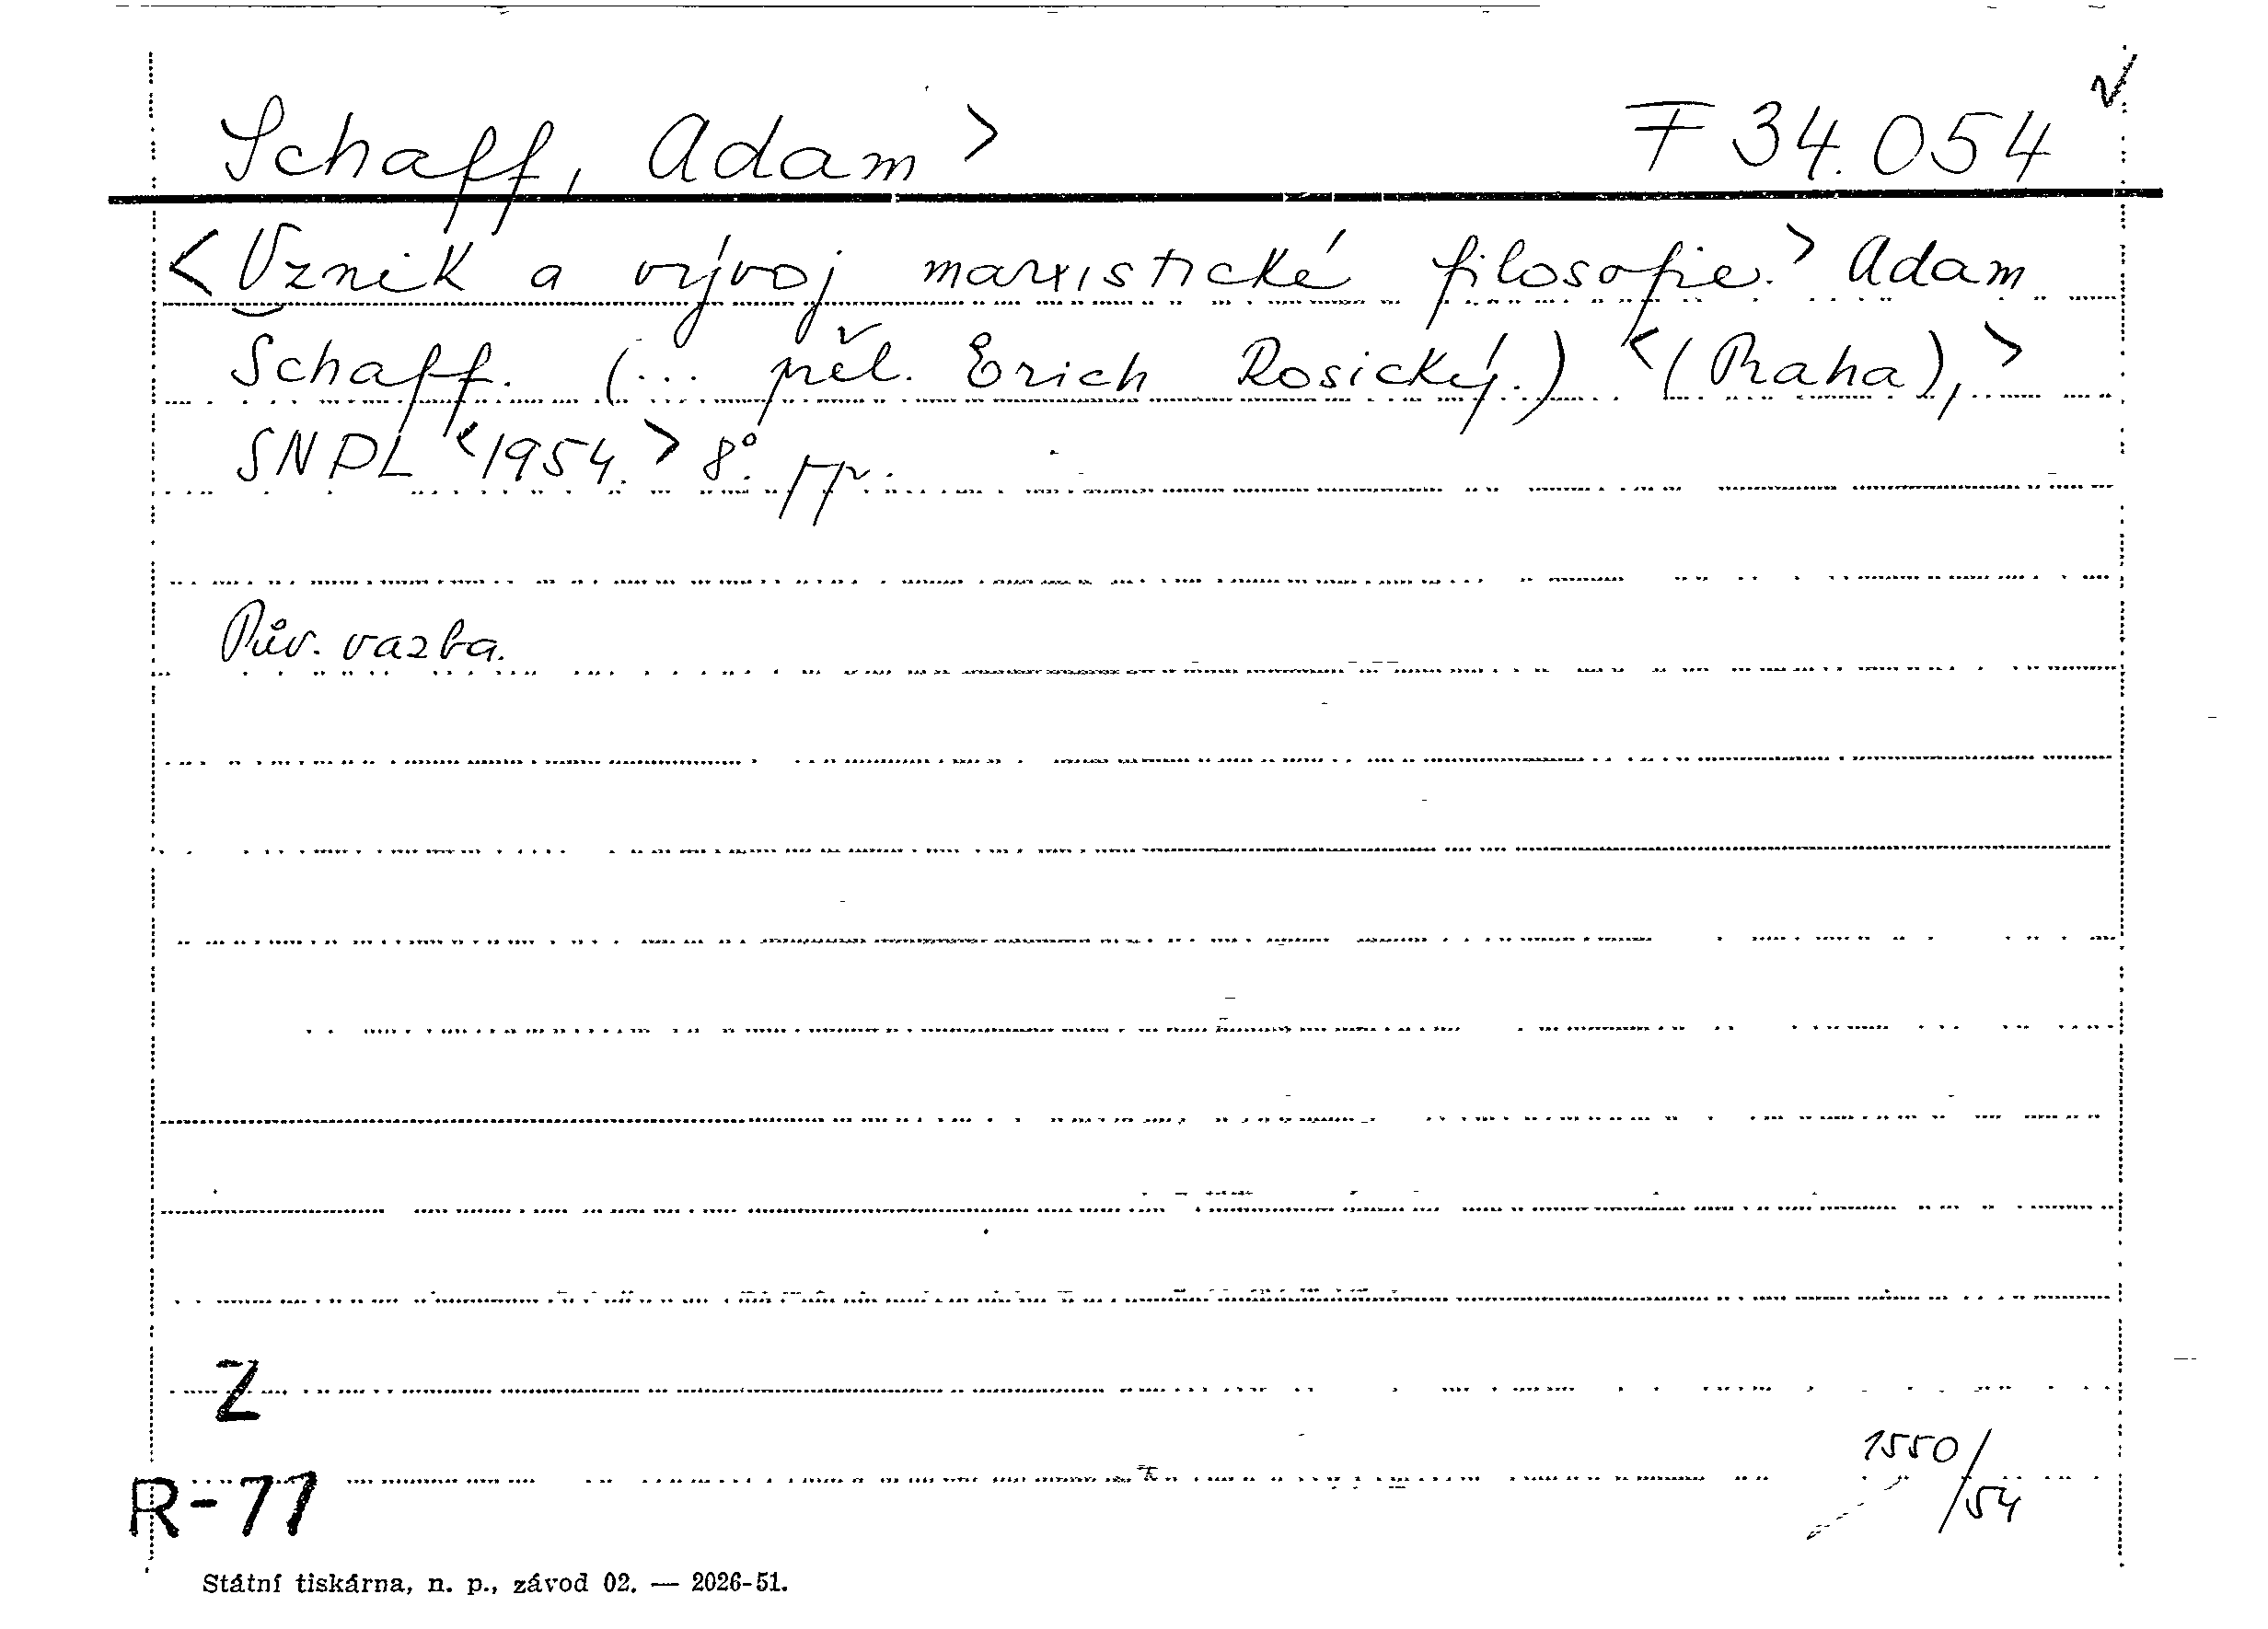 Schaff, Adam > F 34.054 √
<Vznik a vývoj marxistické filosofie.> Adam
Schaff. (... přel. Erich Rosický.) <(Praha),>
SNPL <1954.> 8°. pp.
Pův. vazba.
Z
1550/54
R-71
Státní tiskárna, n. p., závod 02. — 2026-51.